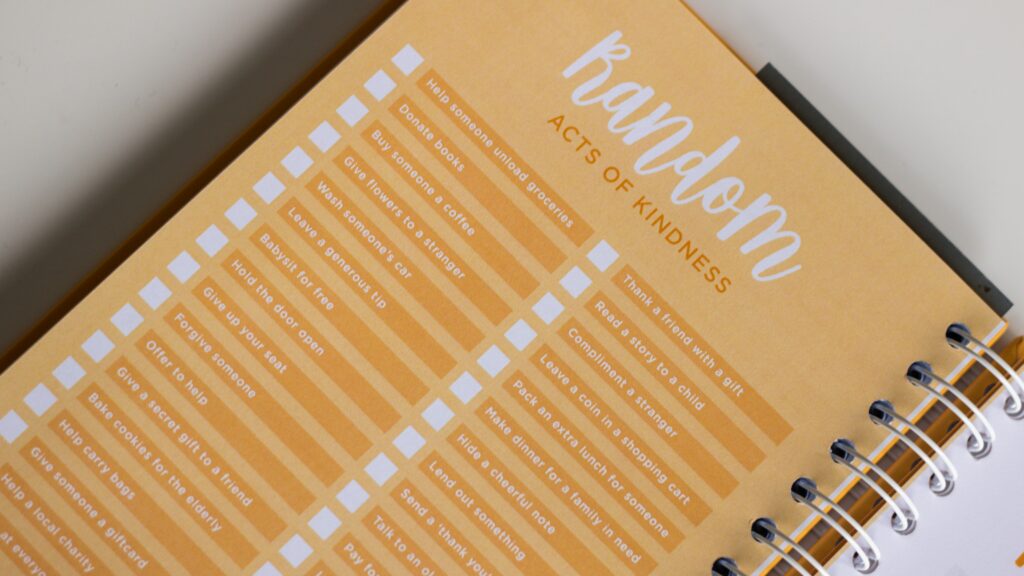 Random
ACTS OF KINDNESS
Help someone unload groceries
Donate books
Buy someone a coffee
Give flowers to a stranger
Wash someone's car
Leave a generous tip
Babysit for free
Hold the door open
Give up your seat
Forgive someone
Offer to help
Give a secret gift to a friend
Bake cookies for the elderly
Help carry bags
Give someone a giftcard
Help a local charity
at everyone
Thank a friend with a gift
Read a story to a child
Compliment a stranger
Leave a coin in a shopping cart
Pack an extra lunch for someone
Make dinner for a family in need
Hide a cheerful note
Lend out something
Send a 'thank you
Talk to an
Pay